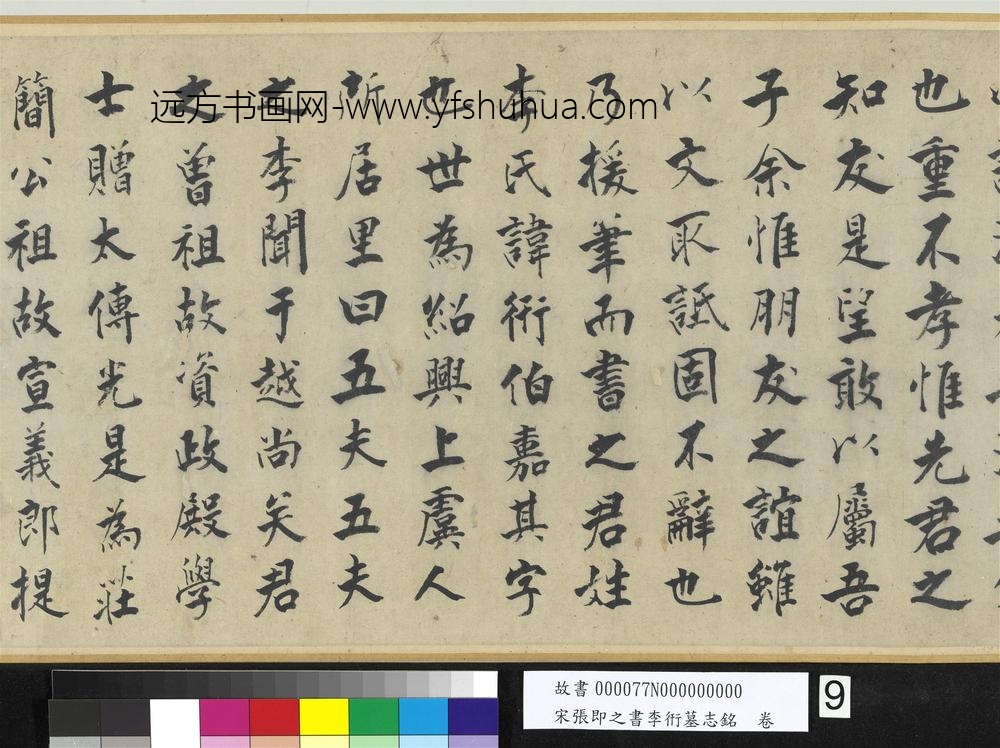 也重不孝惟先君之
知友是望敢以屬吾
子余惟朋友之誼雖
以文取詆固不辭也
乃援筆而書之君姓
李氏諱衎伯嘉其字
也世為紹興上虞人
所居里曰五夫五夫
之李聞于越尚矣君
之曾祖故資政殿學
士贈太傅光是為莊
簡公祖故宣義郎提
远方书画网-www.yfshuhua.com
故書 000077N000000000
宋張即之書李衎墓志銘 卷
9